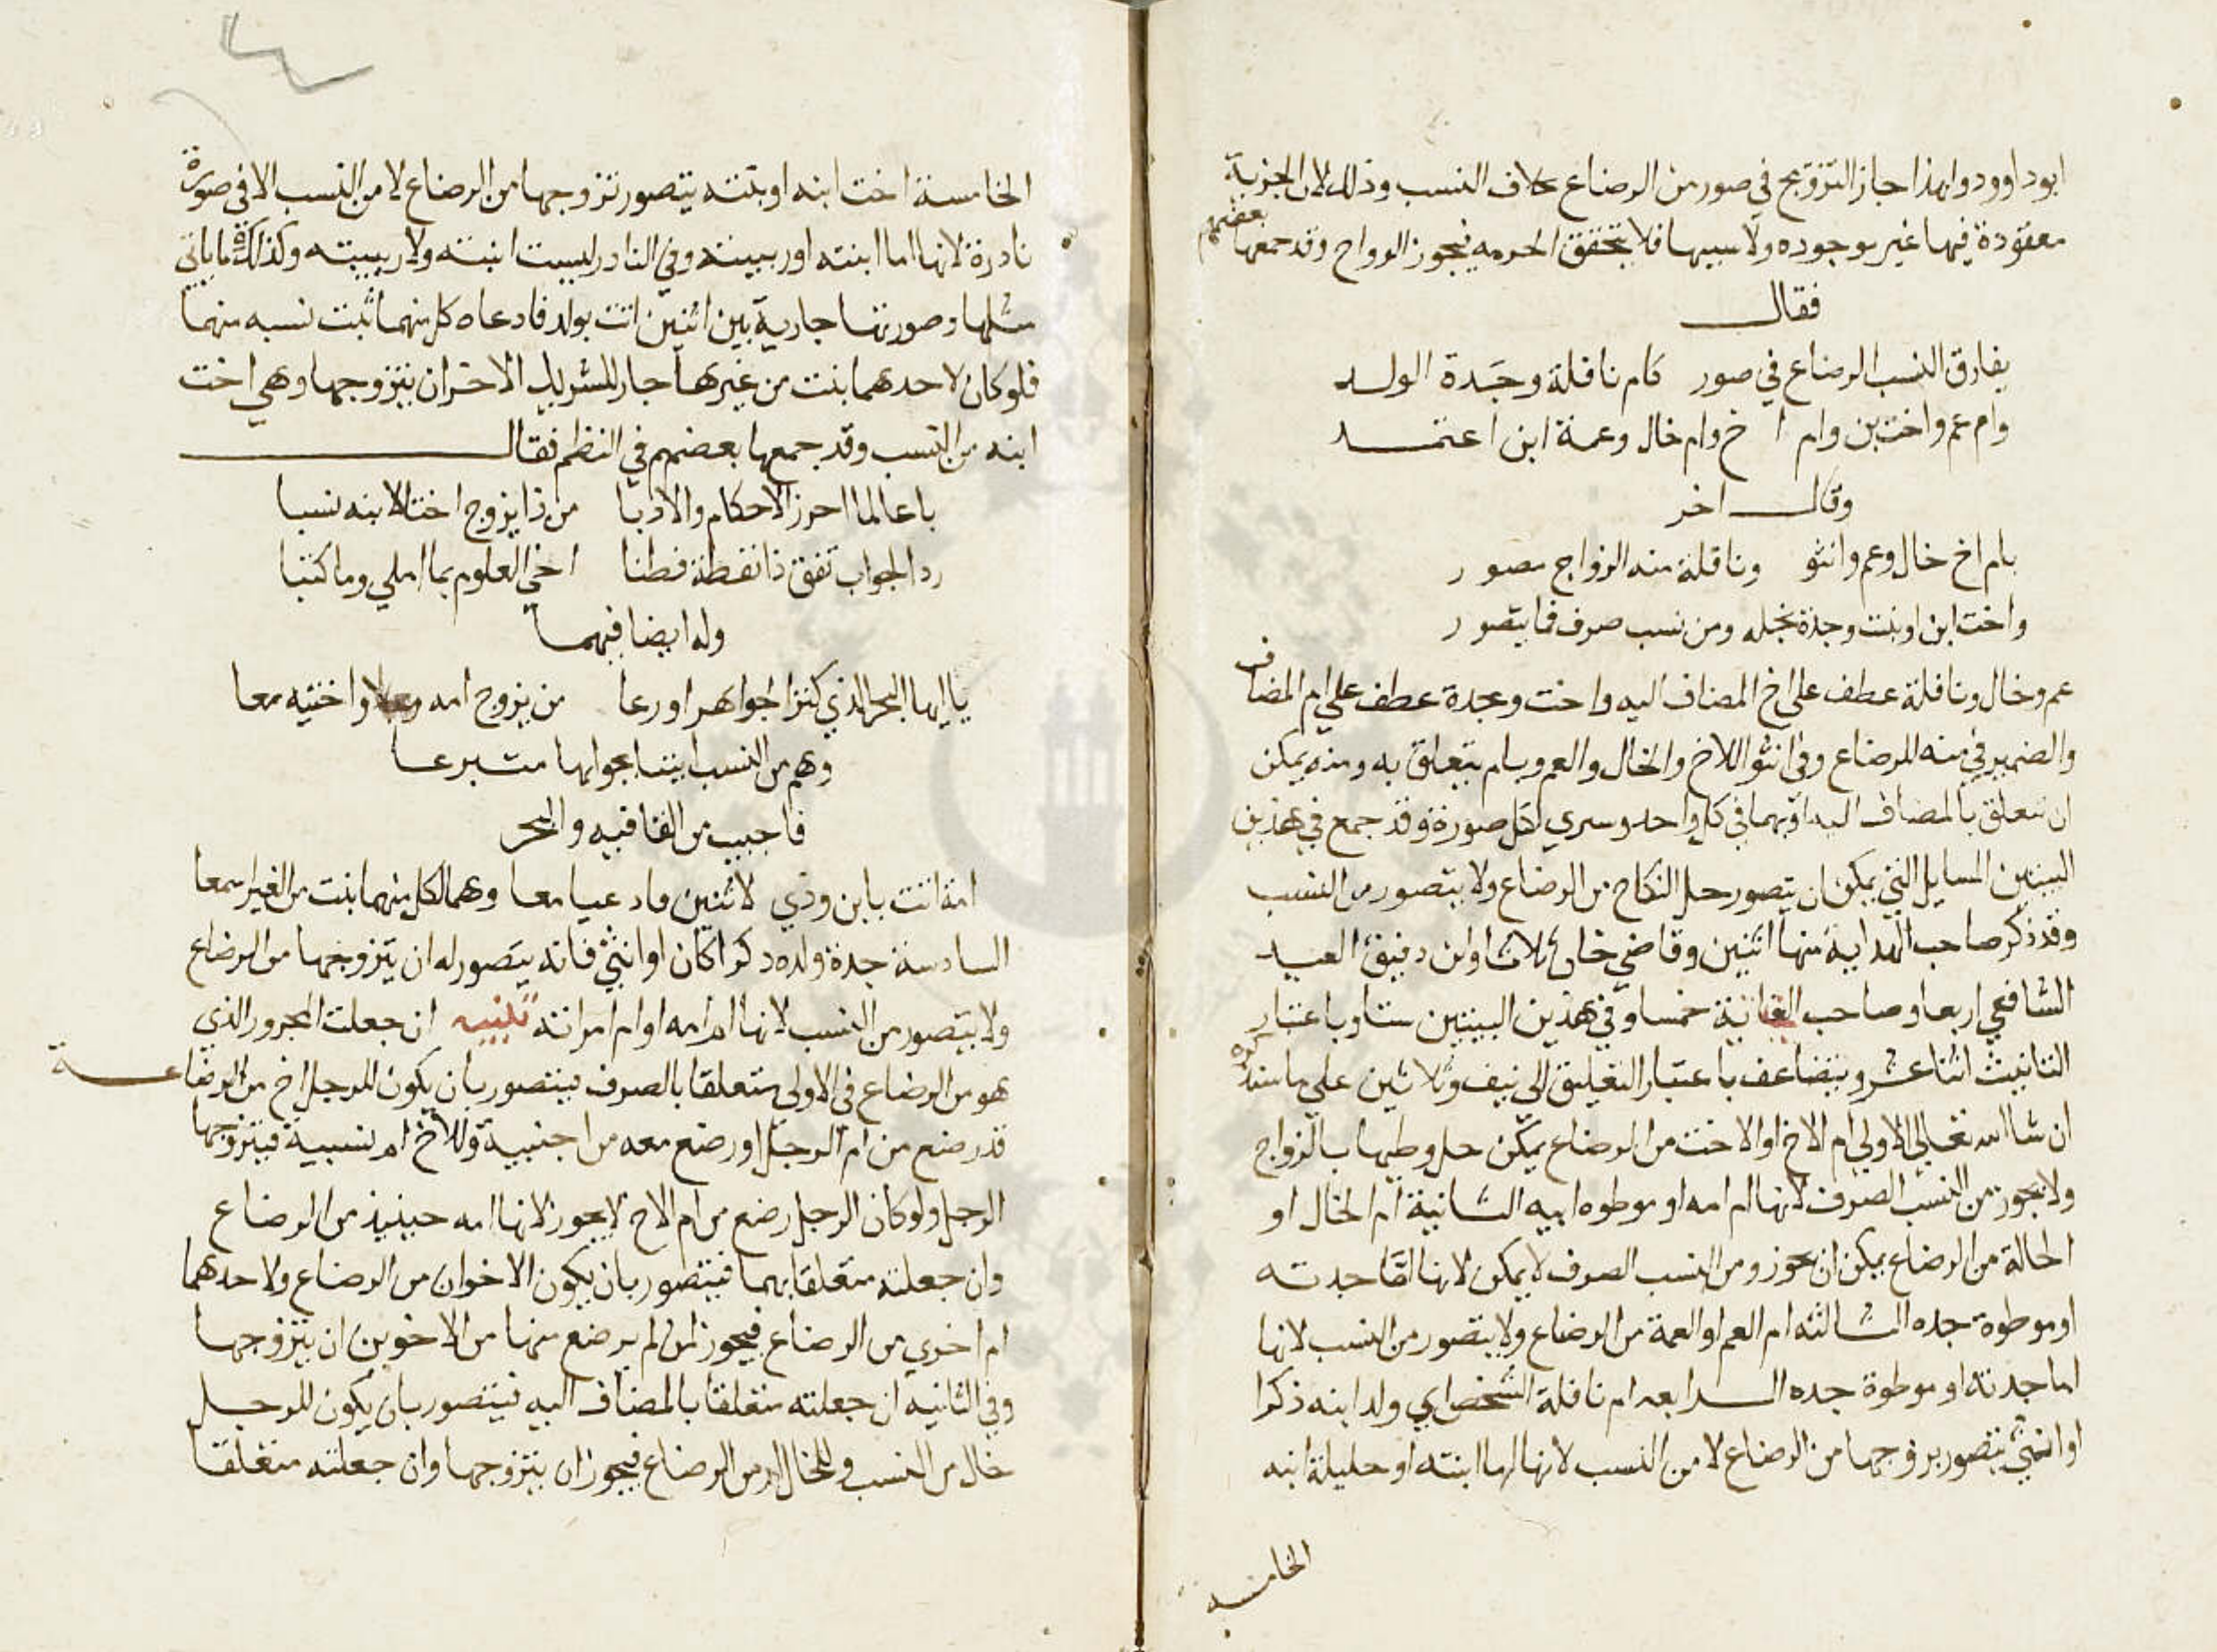 ابوداوود ولهذا جاز التزويج في صور من الرضاع بخلاف النسب وذلك لان الجزبية
مفقودة فيها غير موجوده ولا سببها فلا يتحقق الحرمه فيجوز الزواج وقد جمعها بعضهم
فقال
يفارق النسب الرضاع في صور كام نافلة وجدة الولد
وام عم واخت بن وام اخ وام خال وعمة ابن اعتمد
وقال اخر
بام اخ خال وعم وانثو ونافلة منه الزواج مصور
واخت ابن او بنت وجدة نجله ومن نسب صرف فما يتصور
عم وخال ونافلة عطف على اخ المضاف اليه واخت وجدة عطف علي ام المضاف
والضمير في منه للرضاع وفي انثو اللاخ والخال والعم وبام يتعلق به ومنه يمكن
ان يتعلق بالمضاف اليه او بهما في كل واحد وسري لكل صورة وقد جمع في هذين
البيتين المسايل التي يمكن ان يتصور حل النكاح من الرضاع ولا يتصور من النسب
وقد ذكر صاحب الهداية منها اثنين وقاضي خان ثلاثا وابن دقيق العيد
الشافعي اربعا وصاحب خمسا وفي هذين البيتين ستا وباعتبار
التانيث اثنا عشر ويتضاعف باعتبار التعليق الى نيف وثلاثين على ما سنذكره
ان شا الله تعالى الاولي ام الاخ او الاخت من الرضاع يمكن حل وطيها بالزواج
ولا يجوز من النسب الصرف لانها ام امه او موطوه ابيه الثانية ام الخال او
الخالة من الرضاع يمكن ان يجوز ومن النسب الصرف لا يمكن لانها اما جدته
او موطوة جده الثالثه ام العم او العمة من الرضاع ولا يتصور من النسب لانها
اما جدته او موطوة جده الرابعه ام نافلة الشخص اي ولد ابنه ذكرا
او انثي يتصور بزوجها من الرضاع لا من النسب لانها اما ابنته او حليلة ابنه
الخامسه
الخامسة اخت ابنه او بنته يتصور تزوجها من الرضاع لا من النسب الا في صورة
نادرة لانها اما ابنته او ربيبته وفي النادر ليست ابنته ولا ربيبته وكذلك ما ياتي
مثلها وصورتها جارية بين اثنين اتت بولد فادعاه كل منهما ثبت نسبه منهما
فلو كان لاحدهما بنت من غيرها جاز للشريك الاخر ان يتزوجها وهي اخت
ابنه من النسب وقد جمعها بعضهم في النظم فقال
يا عالما احرز الاحكام والادبا من ذا يزوج اختا لابنه نسبا
رد الجواب تفق ذا نفطة فطنا اخي العلوم بما املي وما كتبا
وله ايضا فيهما
يا ايها البحر الذي كنز الجواهر اورعا من يزوج امه واختيه معا
وهم من النسب ايتنا بجوابها متبرعا
فاجيب من القافيه والبحر
امة اتت بابن وذي لاثنين فادعيا معا وهما لكل منهما بنت من الغير اسمعا
السادسة جدة ولده ذكرا كان او انثي فانه يتصور له ان يتزوجها من الرضاع
ولا يتصور من النسب لانها ام امه او ام امراته تنبيه ان جعلت المجرور الذي
هو من الرضاع في الاولي متعلقا بالصرف فيتصور بان يكون للرجل اخ من الرضاعة
قد رضع من ام الرجل او رضع معه من اجنبية وللاخ ام نسبية فيتزوجها
الرجل ولو كان الرجل رضع من ام الاخ لا يجوز لانها امه حينيذ من الرضاع
وان جعلته متعلقا بهما فيتصور بان يكون الاخوان من الرضاع ولاحدهما
ام اخري من الرضاع فيجوز لمن لم يرضع منها من الاخوين ان يتزوجها
وفي الثانيه ان جعلته متعلقا بالمضاف اليه فيتصور بان يكون للرجل
خال من النسب وللخال ام من الرضاع فيجوز ان يتزوجها وان جعلته متعلقا